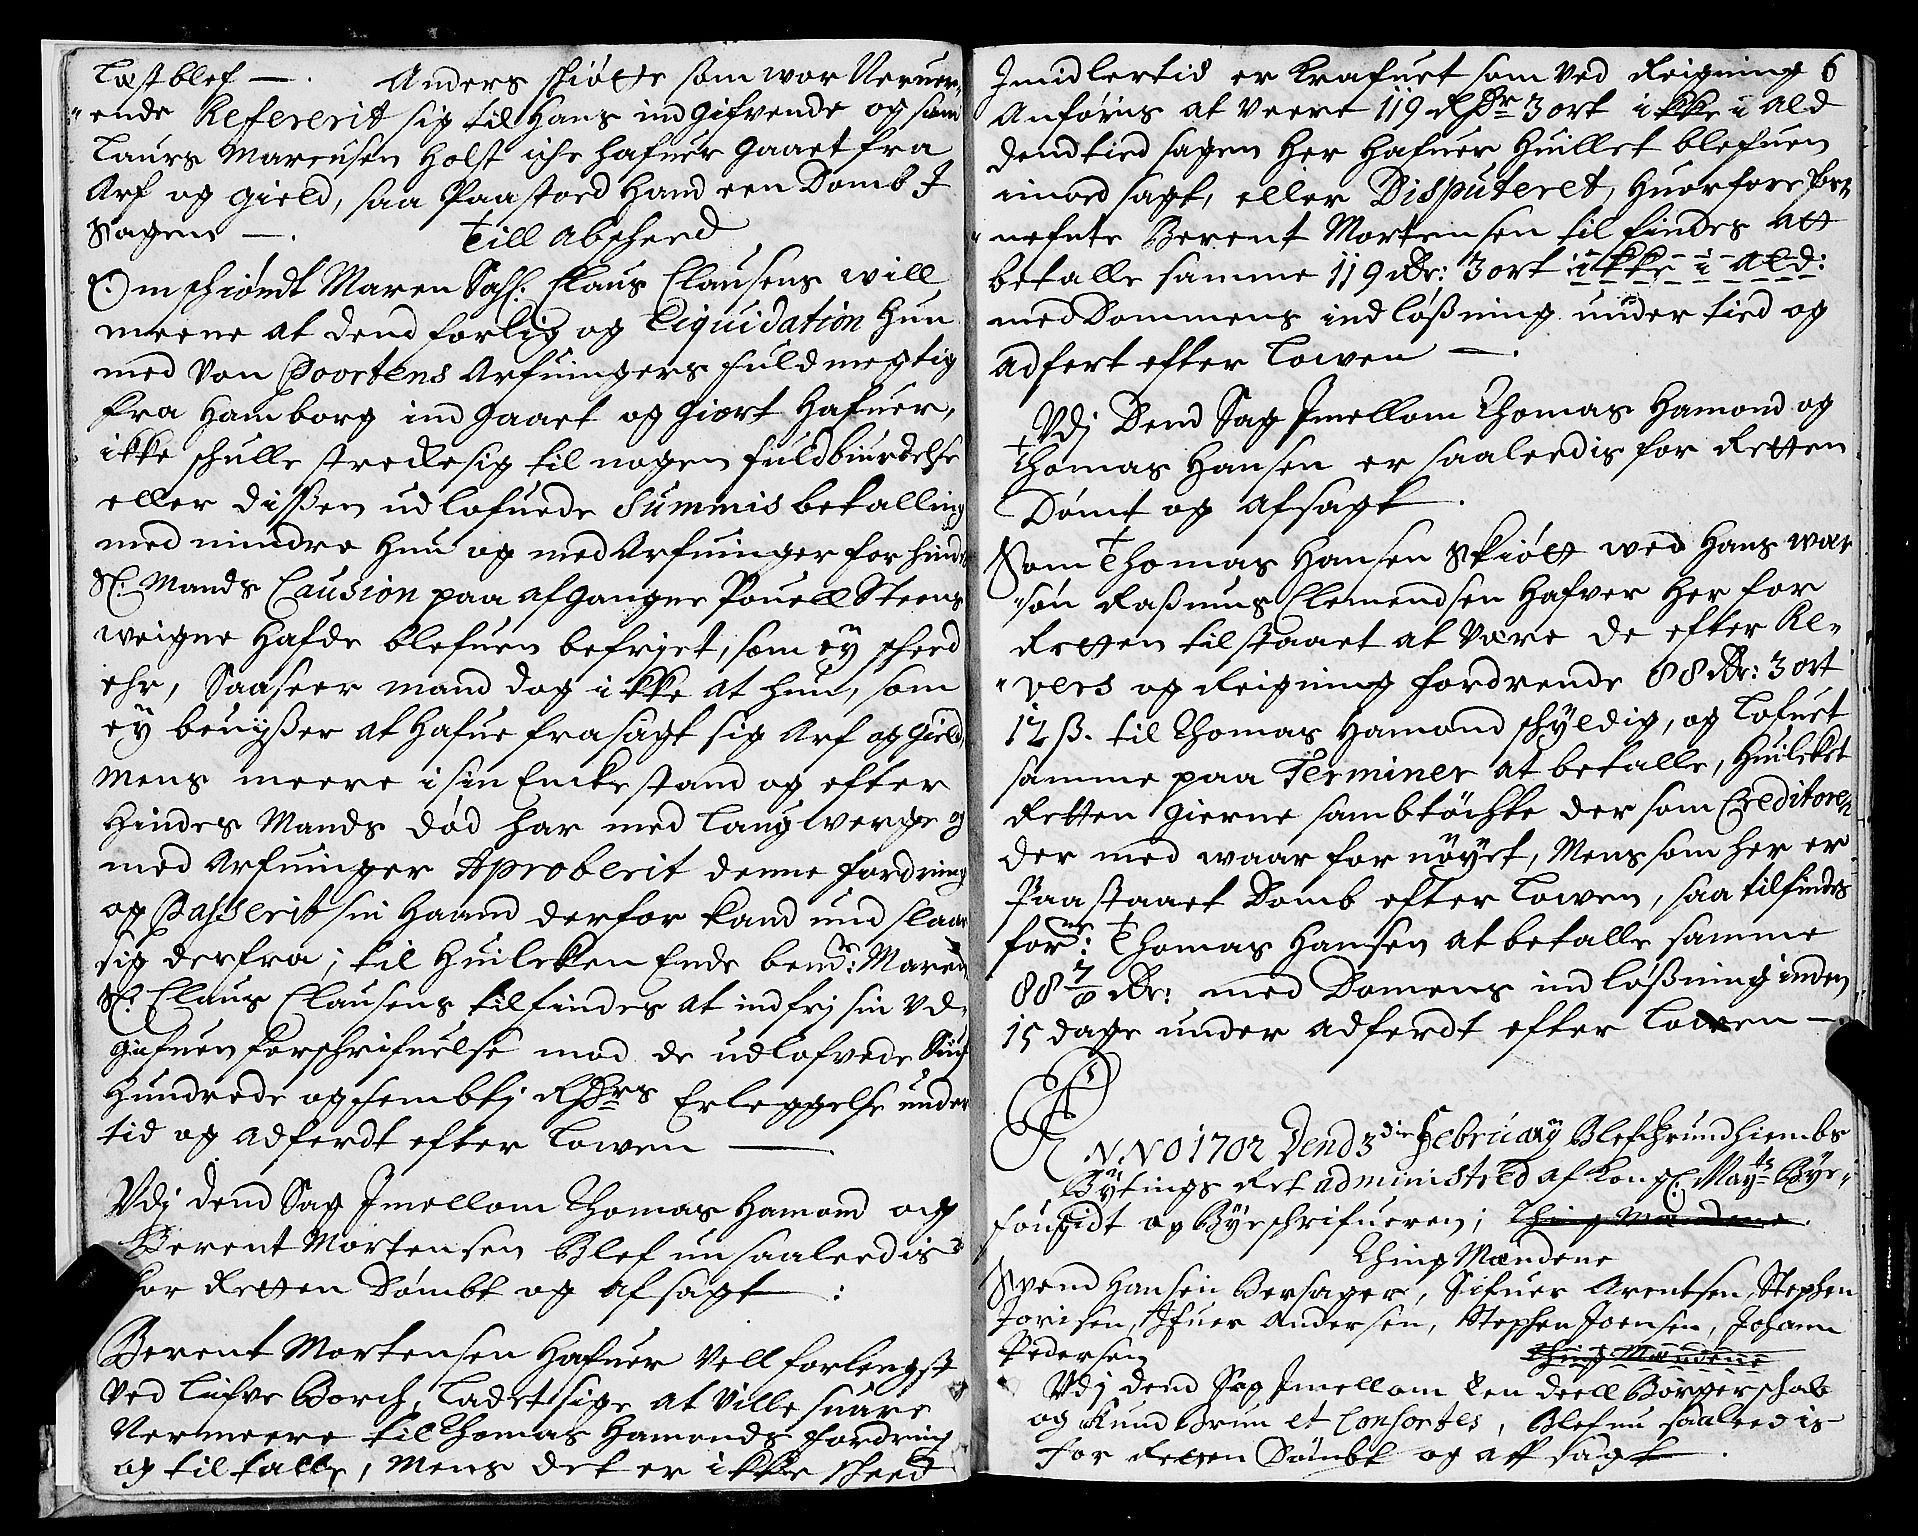 Læst blef —. Anders schiøtte som war Nerver-
ende Refererit sig til Hans indgifvende og som
Laurs Mareusen Holst iche hafuer gaaet fra
Arf og gield, saa Paastoed Hand een Domb I
Sagen —. Till Abscheed
Omschiøndt Maren Sahl: Claus Clausens will
meene at dend forlig og Liquidation Hun
med Von Poortens Arfuingers fuldmegtig
fra Hamborg ind gaaet og giort Hafuer,
ikke schulle strecke sig til nogen fuldbiurdelse
eller dissen udlofuede Summis betalling
med mindre Hun og med Arfuinger for hindes
Sl: Mands Causion paa afgangne Pouell Steens
weigne Hafde blefuen befrjet, som ey scheed
ehr, Saa seer mand dog ikke at hun, som
ey beuyßer at Hafue frasagt sig Arf og gield,
Mens meere i sin Enckestand og efter
Hindes Mands død har med Laugwerge og
med Arfuinger Aproberit denne fordring
og Passerit sin Haand derfor kand und slaae
sig derfra; til Huilcken Ende bemte: Maren
Sl: Claus Clausens tilfindes at indfrj sin Vd-
gifuen forschrifuelse med de udlofvede Siuf
Hundrede og fembtj Rdrs Erleggelse under
tid og adferdt efter Lowen —.
Vdj dend Sag Imellom Thomas Hamond og
Berent Mortensen Blef nu saaleedis
for Retten Dømbt og afsagt :
Berent Mortensen Hafuer Vell forlengst
Ved Lufve Borch, Ladet sige at Ville suare
Nermeere til Thomas Hamonds fordring
og tiltalle, Mens det er ikke scheed
Imidlertid er Krafuet som ved Reigning 6
Anføris at Veere 119 Rdr 3 ort ikke i ald
dend tied sagen Her Hafuer Huillet blefuen
imod sagt, eller Disputeret, Huorfore for-
nefnte Berent Mortensen til findes att
betalle samme 119 Rdr: 3 ort ikke i ald:
med Dommens indløßning under tied og
adfert efter Lowen —.
Vdj Dend Sag Imellom Thomas Hamond og
Thomas Hansen er saaleedis for Retten
Dømt og afsagt .
Som Thomas Hansen Skiøtt wed Hans war
søn Raßmus Clemendsen Hafver Her for
Retten tilstaaet at Være de efter Re-
vers og Reigning fordrende 88 Rdr: 3 ort
12 ß. til Thomas Hamond schyldig, og Lofuet
samme paa Terminer at betalle, Huilcket
Retten gierne sambtøchte der som Creditoren
der med waar fornøyet, Mens som her er
Paastaaet Domb efter Lowen, saa tilfindes
forne: Thomas Hansen at betalle samme
88 7/8 Rdr: med Domens indløßning inden
15 dage under adferdt efter Lowen —
ANNO 1702 Dend 3die February Blef Trundhiembs
Bytings Ret administred af Kongl: Mayts Bye-
fougidt og Byeschrifueren; Thing Mændene .
Thing Mændene
Svend Hansen Bersager, Sifuer Arentsen, Stephen
Jorisen, Ifuer Andersen, Stephen Joensen, Johann
Pedersen Thing Mændene
Vdj dend Sag Imellom Een deell Borgerschab
og Knud Brun et Consortes, Blef nu saaleedis
for Retten Dømbt og aff sagt .